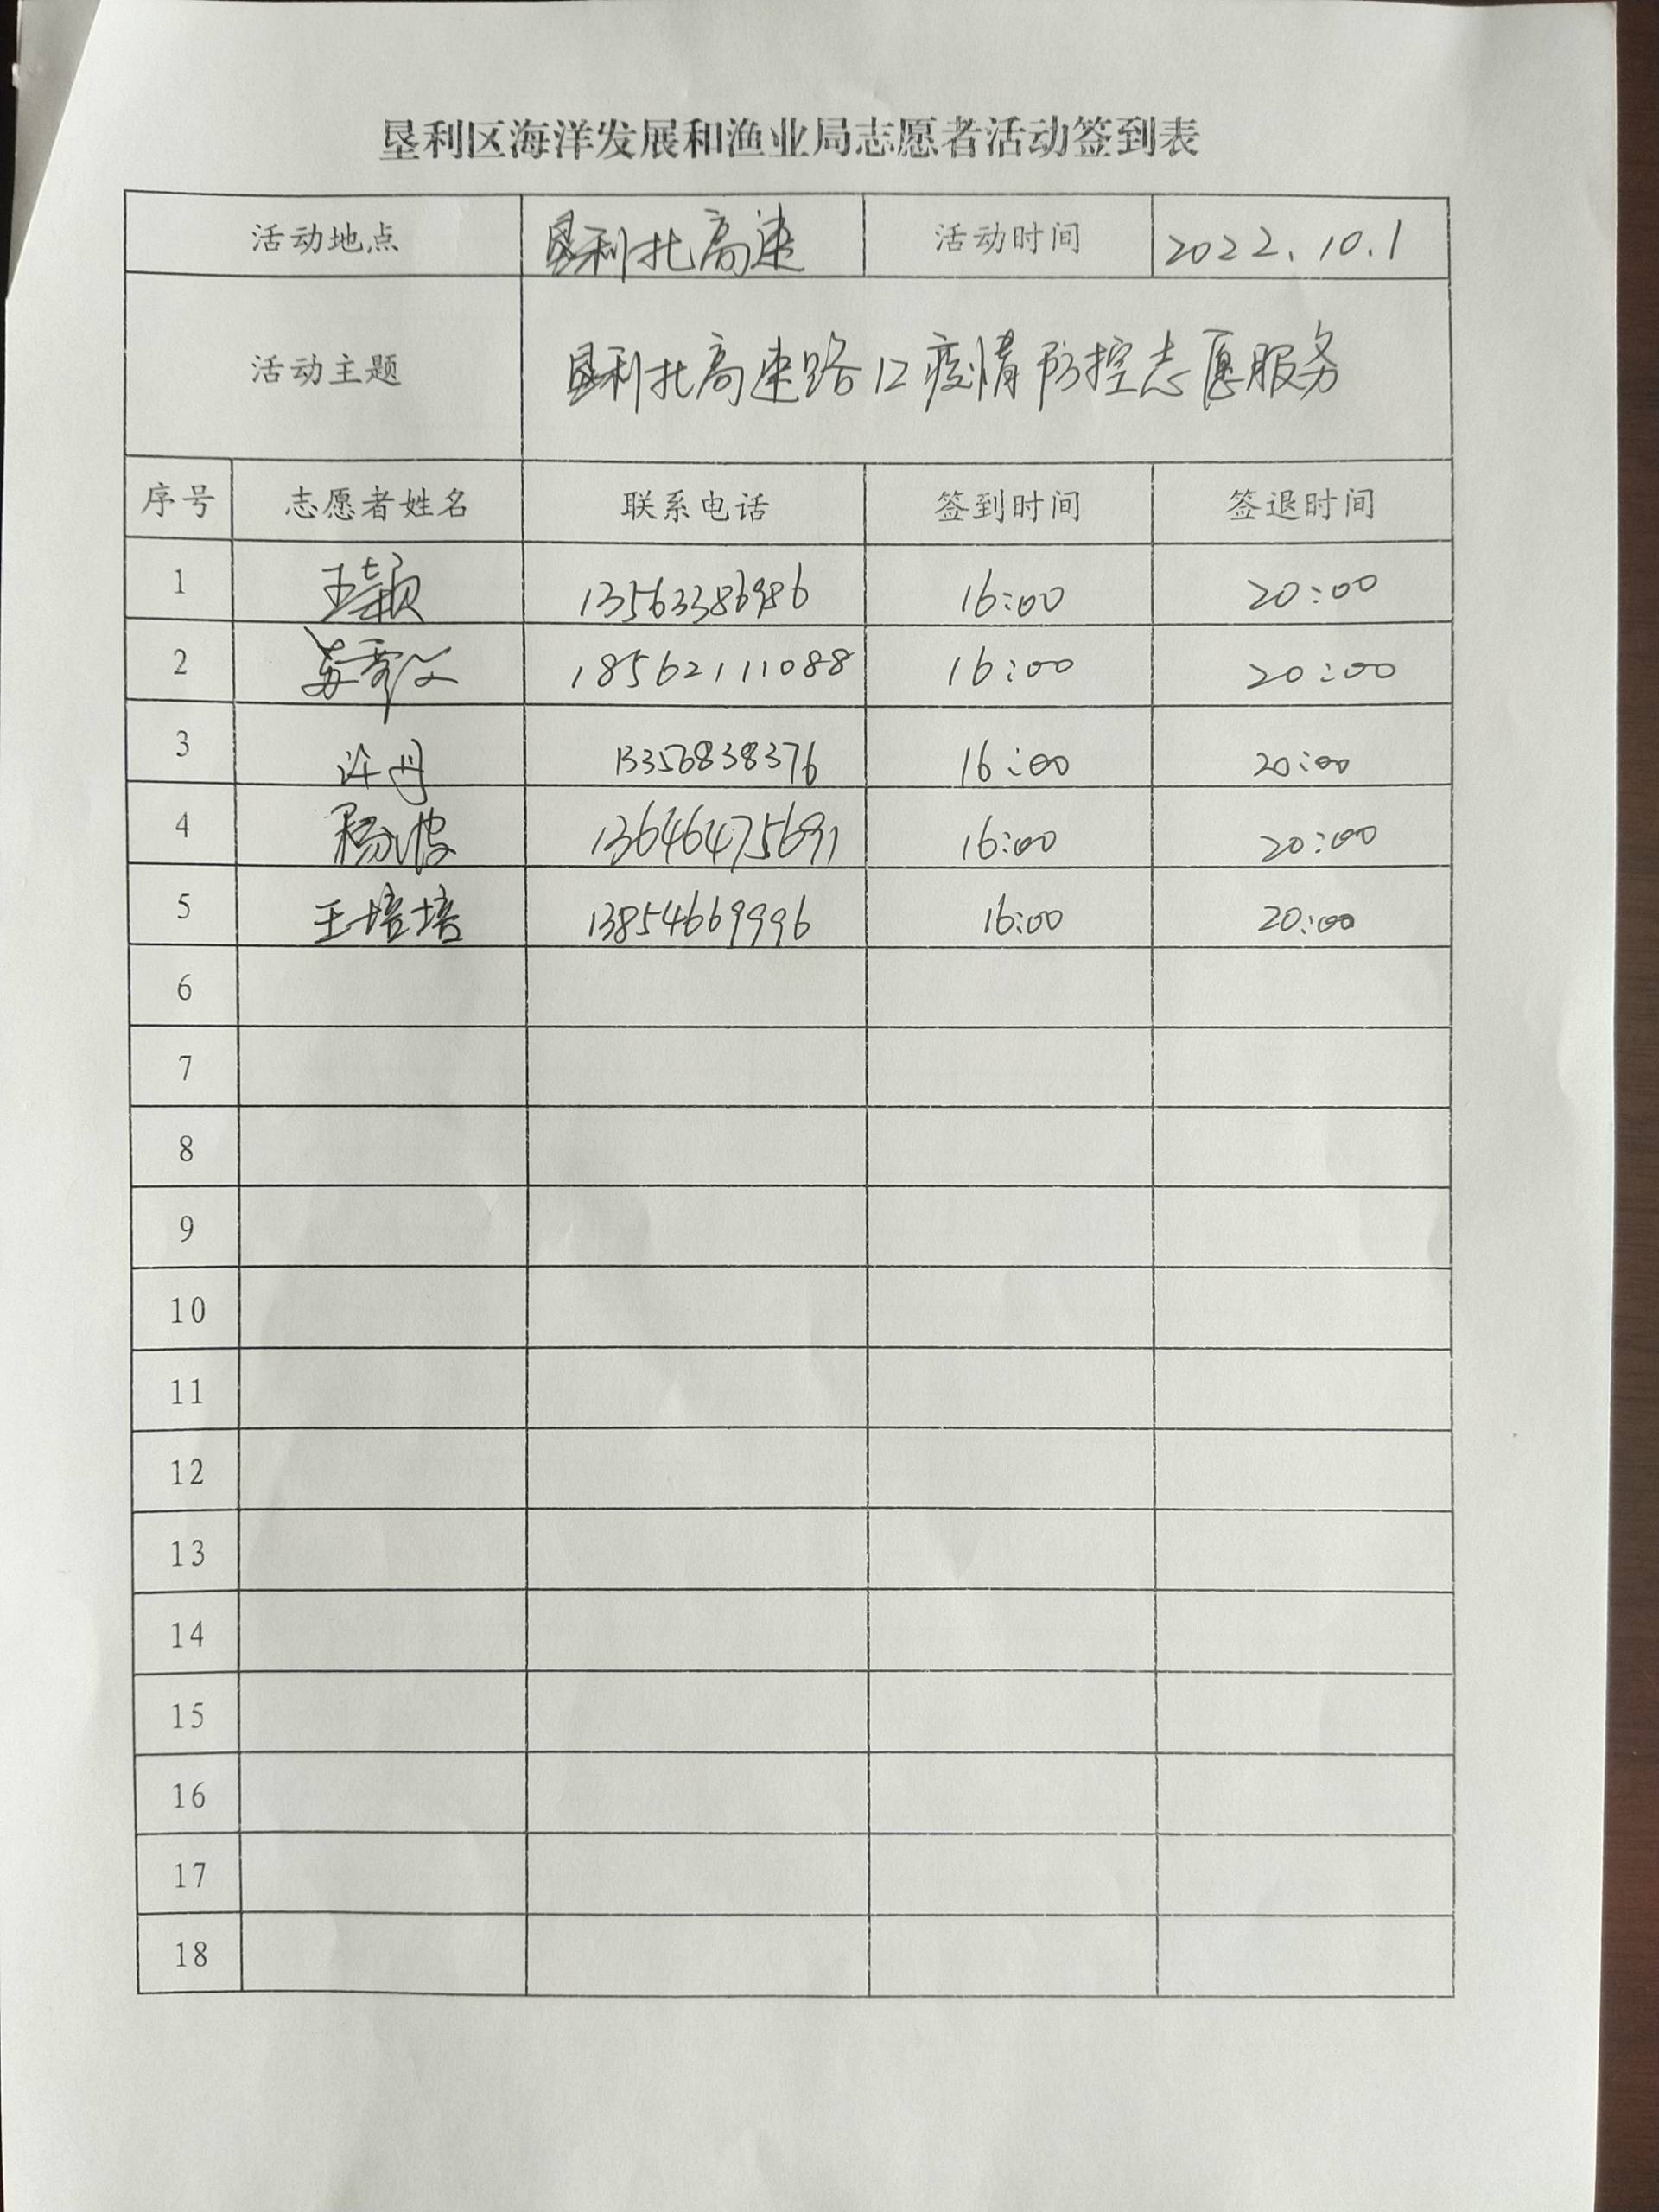 垦利区海洋发展和渔业局志愿者活动签到表
活动地点 垦利北高速 活动时间 2022.10.1
活动主题 垦利北高速路口疫情防控志愿服务
序号 志愿者姓名 联系电话 签到时间 签退时间
1 王颖 13563386986 16:00 20:00
2 苏 18562111088 16:00 20:00
3 许丹 13356838376 16:00 20:00
4 杨波 13646475691 16:00 20:00
5 王培培 13854669996 16:00 20:00
6
7
8
9
10
11
12
13
14
15
16
17
18